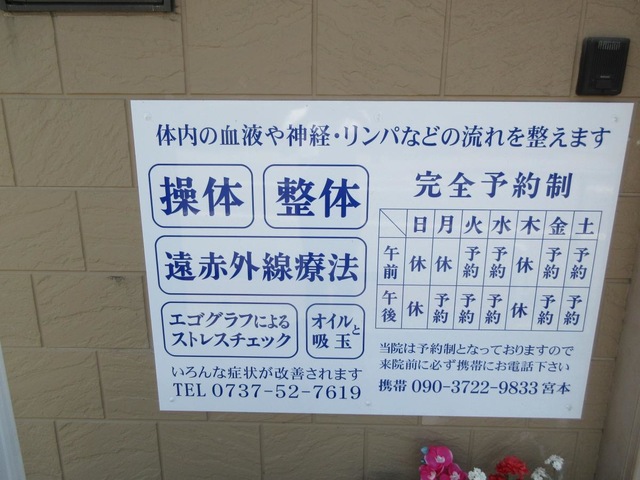 体内の血液や神経・リンパなどの流れを整えます
操体 整体
遠赤外線療法
エゴグラフによる
ストレスチェック
オイルと
吸玉
いろんな症状が改善されます
TEL 0737-52-7619
完全予約制
日 月 火 水 木 金 土
午前 休 休 予約 予約 休 予約 予約
午後 休 予約 予約 予約 休 予約 予約
当院は予約制となっておりますので
来院前に必ず携帯にお電話下さい
携帯 090-3722-9833 宮本